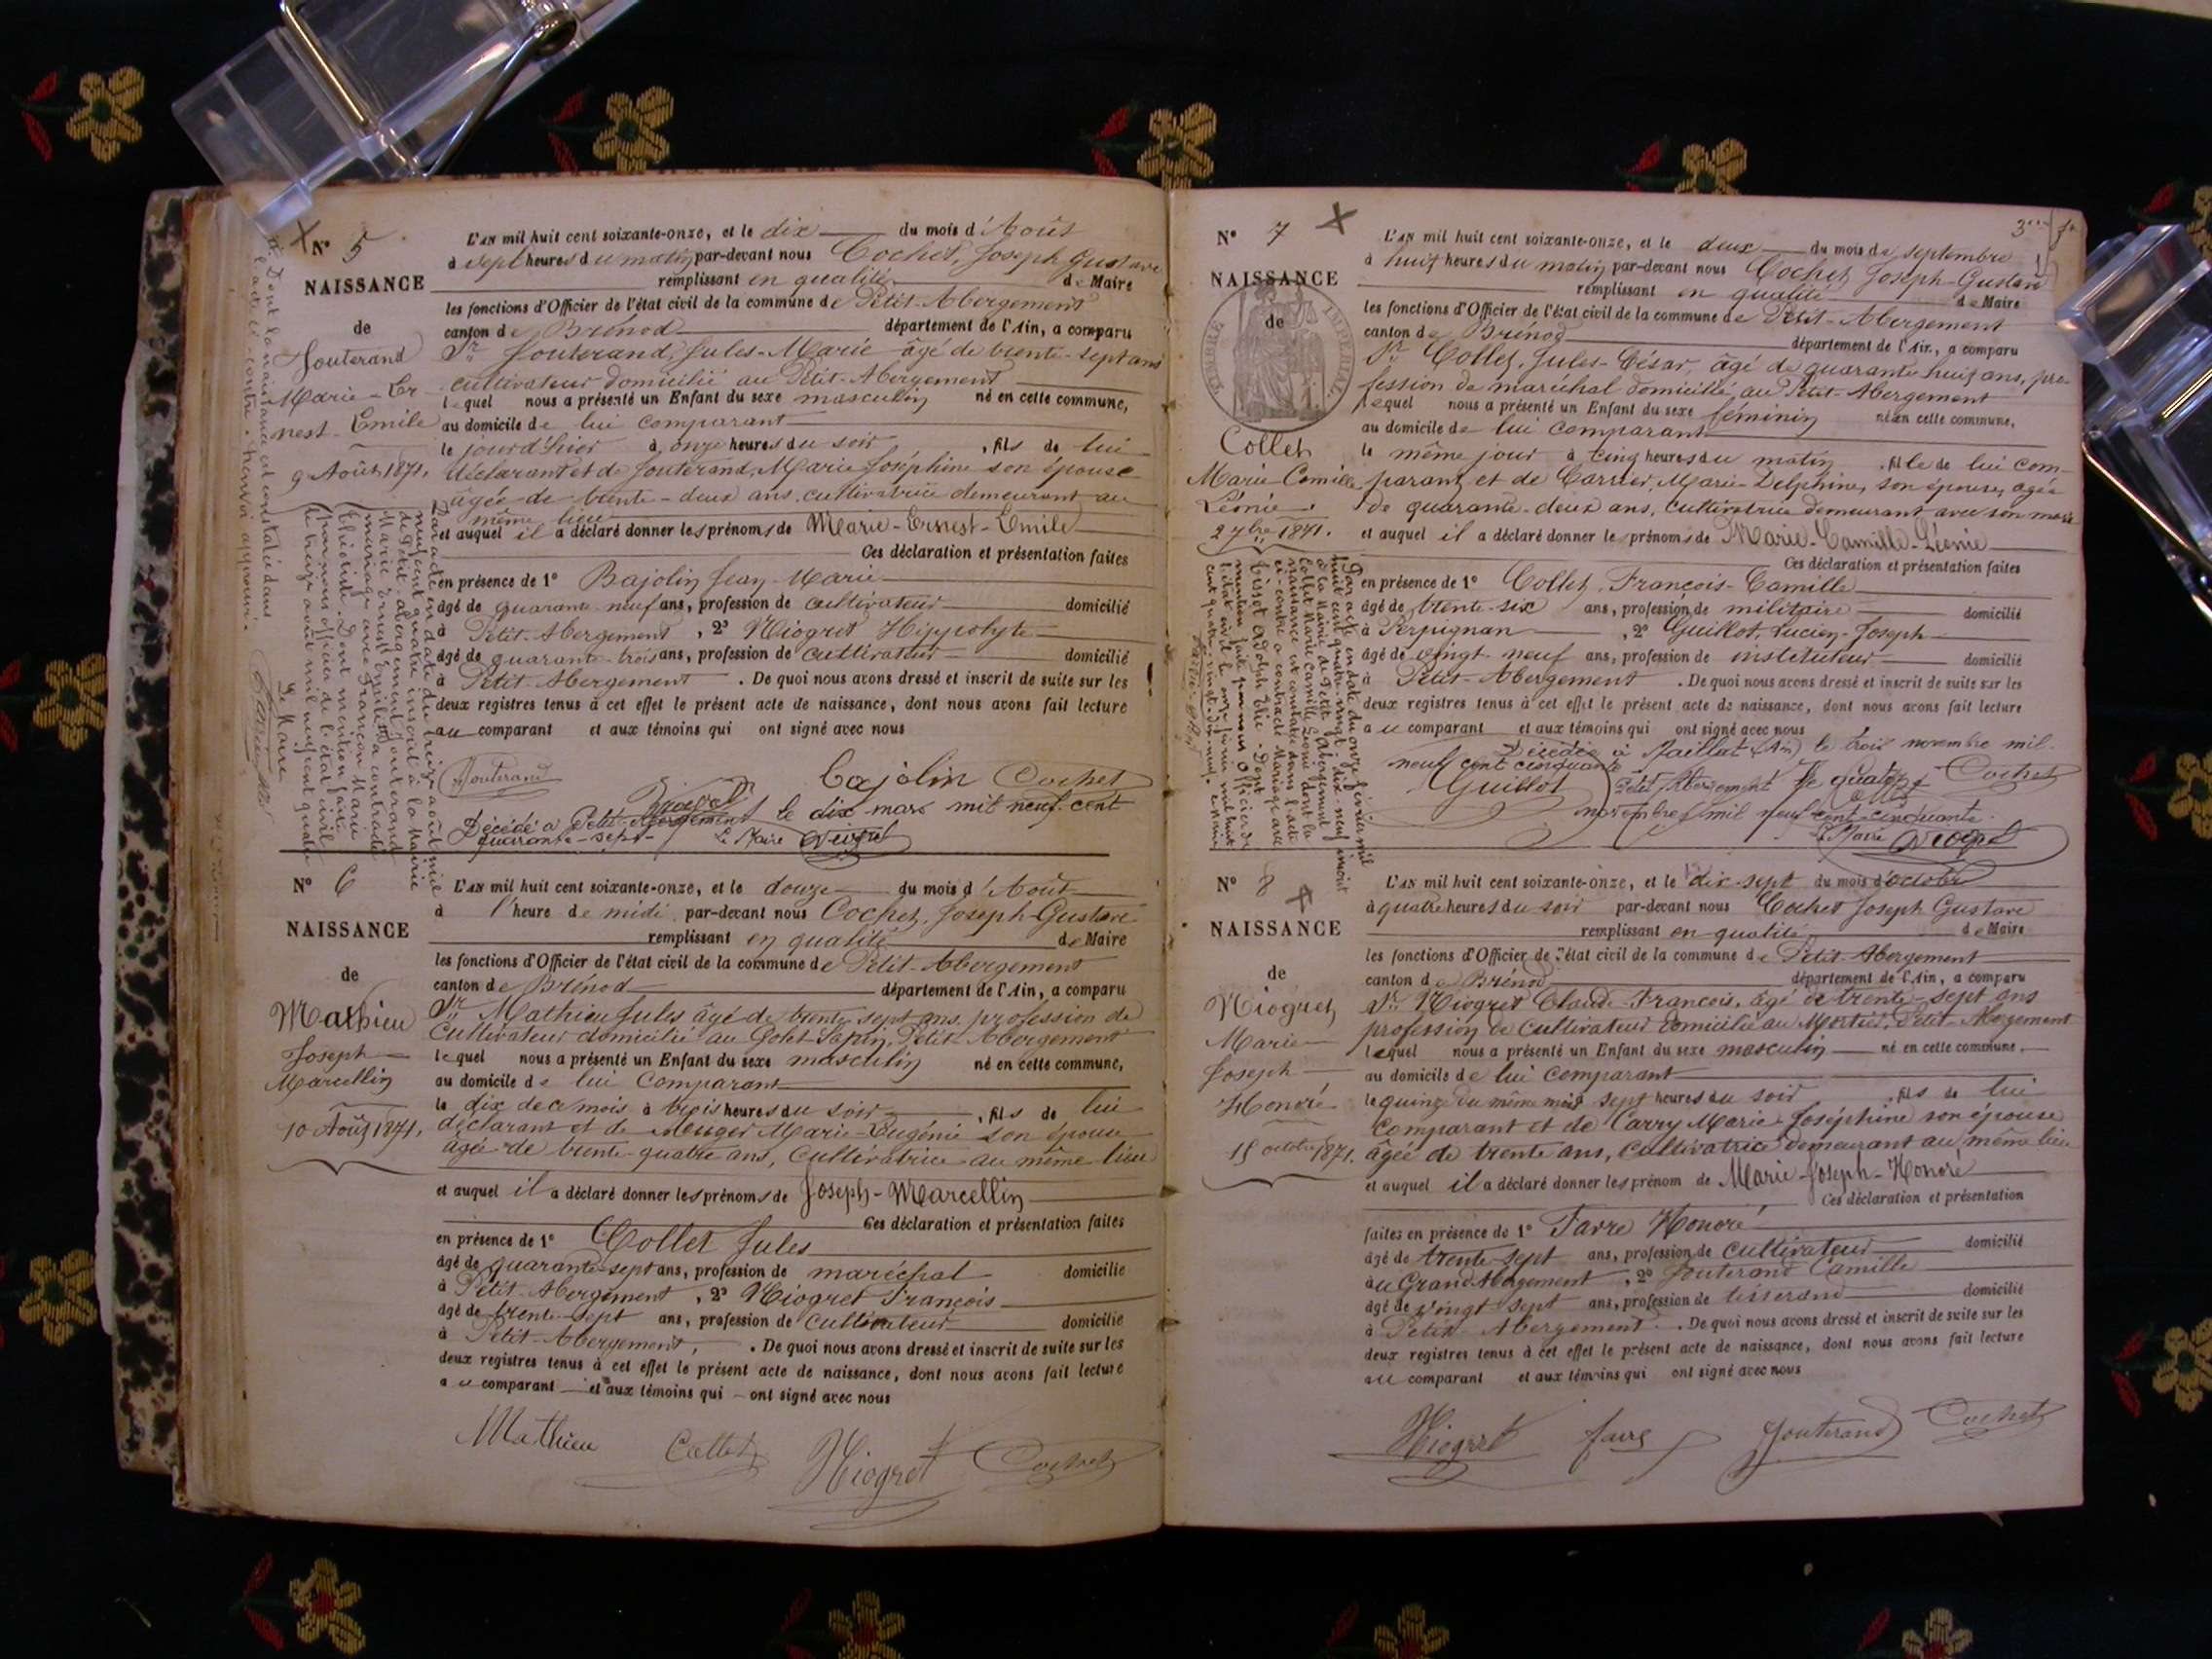 N° 5
NAISSANCE
de
Jouterand
Marie-Er
nest-Emile
9 Août 1871.
L'AN mil huit cent soixante-onze, et le dix du mois d'Août
à sept heures du matin par-devant nous Cochet, Joseph Gustave
remplissant en qualité de Maire
les fonctions d'Officier de l'état civil de la commune de Petit-Abergement
canton de Brénod département de l'Ain, a comparu
Sr Jouterand, Jules-Marie âgé de trente-sept ans
cultivateur domicilié au Petit-Abergement
lequel nous a présenté un Enfant du sexe masculin né en cette commune,
au domicile de lui comparant
le jour d'hier à onze heures du soir, fils de lui
déclarant et de Jouterand, Marie Joséphine son épouse
âgée de trente-deux ans, cultivatrice demeurant au
même lieu
et auquel il a déclaré donner les prénoms de Marie-Ernest-Emile
Ces déclaration et présentation faites
en présence de 1° Bajolin Jean-Marie
âgé de quarante-neuf ans, profession de cultivateur domicilié
à Petit-Abergement, 2° Niogret Hippolyte
âgé de quarante-trois ans, profession de cultivateur domicilié
à Petit-Abergement. De quoi nous avons dressé et inscrit de suite sur les
deux registres tenus à cet effet le présent acte de naissance, dont nous avons fait lecture
au comparant et aux témoins qui ont signé avec nous
Jouterand Bajolin Cochet
Niogret
Décédé à Petit-Abergement le dix mars mil neuf cent
quarante-sept- Le Maire
Par acte en date du treize août mil
neuf cent quatre inscrit à la Mairie
de Petit-Abergement Jouterand
Marie Ernest Emile a contracté
mariage avec Françon Marie
Dont mention faite
par nous officier de l'état civil
le treize août mil neuf cent quatre
Le Maire
Dont la naissance est constatée dans
l'acte ci-contre. renvoi approuvé.
N° 6
NAISSANCE
de
Mathieu
Joseph
Marcellin
10 Août 1871.
L'AN mil huit cent soixante-onze, et le douze du mois d'Août
à l'heure de midi par-devant nous Cochet, Joseph-Gustave
remplissant en qualité de Maire
les fonctions d'Officier de l'état civil de la commune de Petit-Abergement
canton de Brénod département de l'Ain, a comparu
Sr Mathieu Jules âgé de trente sept ans, profession de
cultivateur domicilié au Golet-Sapin, Petit-Abergement
lequel nous a présenté un Enfant du sexe masculin né en cette commune,
au domicile de lui comparant
le dix de ce mois à trois heures du soir, fils de lui
déclarant et de Muger Marie-Eugénie son épouse
âgée de trente-quatre ans, cultivatrice au même lieu
et auquel il a déclaré donner les prénoms de Joseph-Marcellin
Ces déclaration et présentation faites
en présence de 1° Collet Jules
âgé de quarante-sept ans, profession de maréchal domicilié
à Petit-Abergement, 2° Niogret François
âgé de trente-sept ans, profession de cultivateur domicilié
à Petit-Abergement. De quoi nous avons dressé et inscrit de suite sur les
deux registres tenus à cet effet le présent acte de naissance, dont nous avons fait lecture
au comparant et aux témoins qui ont signé avec nous
Mathieu Collet Niogret Cochet
N° 7
NAISSANCE
de
TIMBRE IMPERIAL
Collet
Marie Camille
Léonie.
2 7bre 1871.
L'AN mil huit cent soixante-onze, et le deux du mois de septembre
à huit heures du matin par-devant nous Cochet, Joseph-Gustave
remplissant en qualité de Maire
les fonctions d'Officier de l'état civil de la commune de Petit-Abergement
canton de Brénod département de l'Ain, a comparu
Sr Collet, Jules-César, âgé de quarante-huit ans, pro-
fession de maréchal domicilié au Petit-Abergement
lequel nous a présenté un Enfant du sexe féminin né en cette commune,
au domicile de lui comparant
le même jour à cinq heures du matin, fille de lui com-
parant et de Carrier, Marie-Delphine, son épouse, agée
de quarante-deux ans, cultivatrice demeurant avec son mari
et auquel il a déclaré donner le prénoms de Marie-Camille-Léonie
Ces déclaration et présentation faites
en présence de 1° Collet, François-Camille
âgé de trente-six ans, profession de militaire domicilié
à Perpignan, 2° Guillot, Lucien-Joseph
âgé de vingt-neuf ans, profession de instituteur domicilié
à Petit-Abergement. De quoi nous avons dressé et inscrit de suite sur les
deux registres tenus à cet effet le présent acte de naissance, dont nous avons fait lecture
au comparant et aux témoins qui ont signé avec nous
Décédée à Maillat (Ain) le trois novembre mil
neuf cent cinquante
Petit Abergement le quatre
novembre mil neuf cent cinquante
Le Maire
Guillot Collet Cochet
Par acte en date du onze février mil
huit cent quatre-vingt-dix-neuf inscrit
à la Mairie de Petit Abergement
Collet Marie Camille Léonie dont la
naissance est constatée dans l'acte
ci-contre a contracté Mariage avec
Adolphe Elie. Dont
mention faite par nous Officier de
l'état civil le onze février mil huit
cent quatre-vingt-dix-neuf.
N° 8
NAISSANCE
de
Niogret
Marie
Joseph
Honoré
15 octobre 1871.
L'AN mil huit cent soixante-onze, et le dix-sept du mois d'octobre
à quatre heures du soir par-devant nous Cochet Joseph Gustave
remplissant en qualité de Maire
les fonctions d'Officier de l'état civil de la commune de Petit-Abergement
canton de Brénod département de l'Ain, a comparu
Sr Niogret Claude-François, âgé de trente-sept ans
profession de cultivateur domicilié au Mortier, Petit-Abergement
lequel nous a présenté un Enfant du sexe masculin né en cette commune,
au domicile de lui comparant
le quinze du même mois sept heures du soir, fils de lui
comparant et de Carry Marie Joséphine son épouse
âgée de trente ans, cultivatrice demeurant au même lieu
et auquel il a déclaré donner les prénom de Marie-Joseph-Honoré
Ces déclaration et présentation
faites en présence de 1° Favre Honoré
âgé de trente-sept ans, profession de cultivateur domicilié
au Grand-Abergement, 2° Jouterand Camille
âgé de vingt-sept ans, profession de tisserand domicilié
à Petit-Abergement. De quoi nous avons dressé et inscrit de suite sur les
deux registres tenus à cet effet le présent acte de naissance, dont nous avons fait lecture
au comparant et aux témoins qui ont signé avec nous
Niogret favre Jouterand Cochet